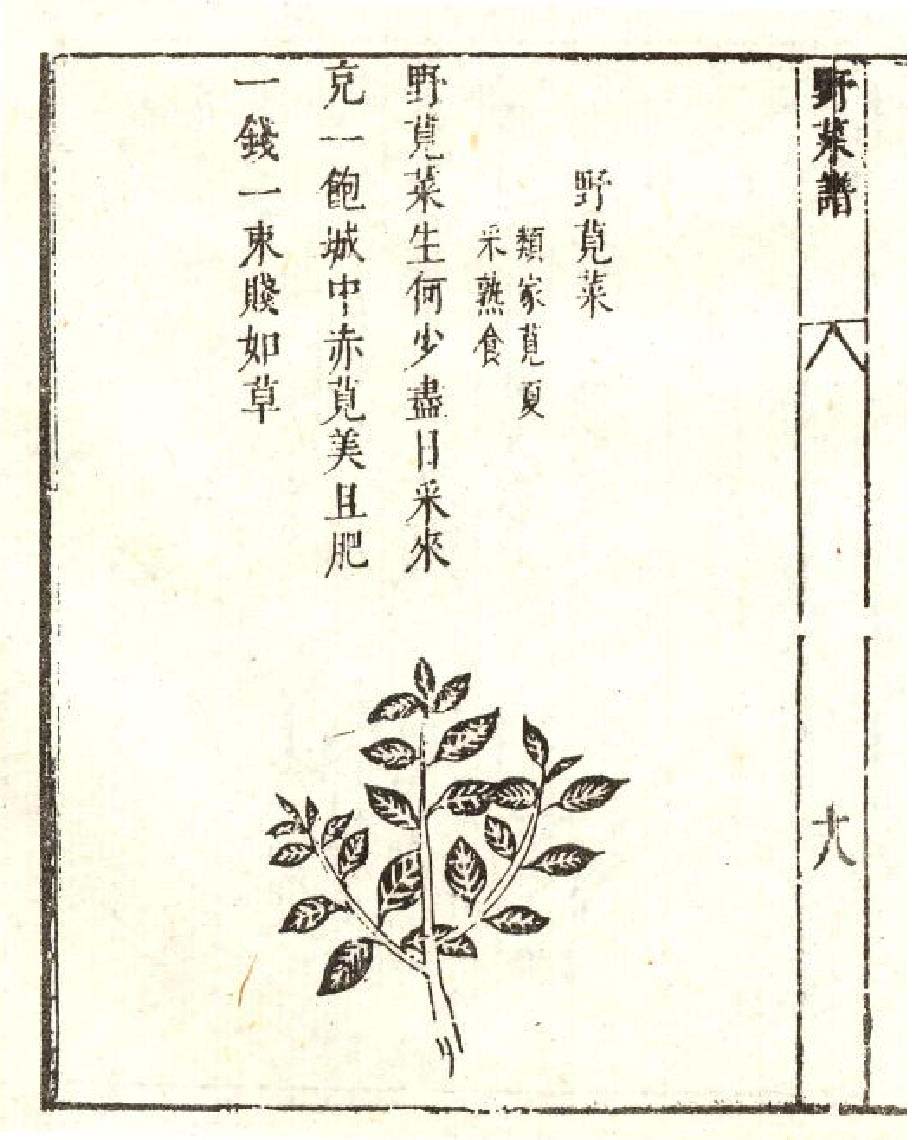 野菜譜
十八
野莧菜
類家莧夏
采熟食
野莧菜生何少盡日采來
充一飽城中赤莧美且肥
一錢一束賤如草